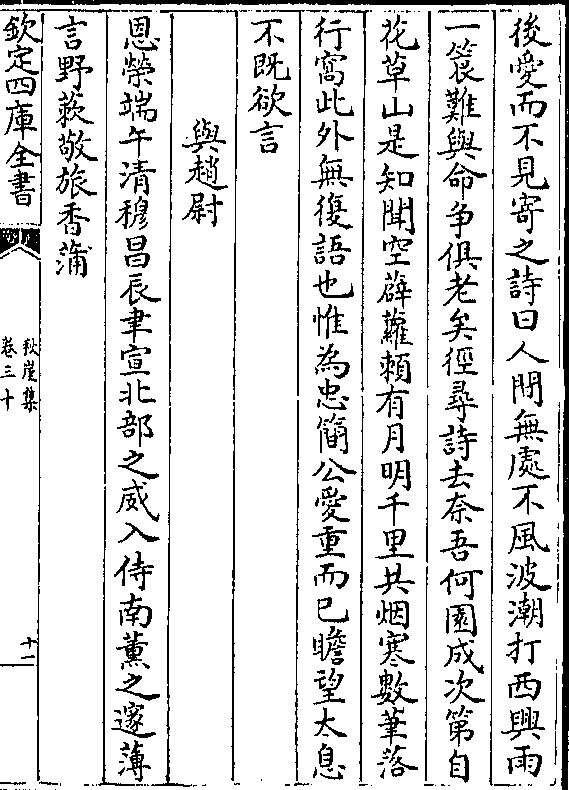 後愛而不見寄之詩曰人間無處不風波潮打西興雨
一簑難與命爭俱老矣徑尋詩去奈吾何園成次第自
花草山是知聞空薜蘿頼有月明千里共烟寒數筆落
行窩此外無復語也惟為忠簡公愛重而已瞻望太息
不既欲言
與趙尉
恩榮端午清穆昌辰聿宣北部之威入侍南薰之邃薄
言野蔌敬旅香蒲
欽定四庫全書
秋崖集
卷三十
十一